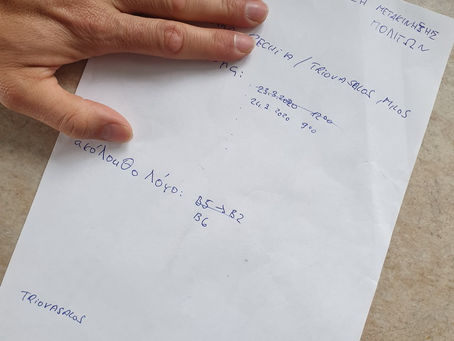 ΜΕΤΑΚΙΝΗΣΗΣ
ΠΟΛΙΤΩΝ
/ TRIOVASALOS, MILOS
23.3.2020 12⁰⁰
24.3.2020 9⁰⁰
ακόλουθο λόγο: B5 → B2
B6
TRIOVASALOS